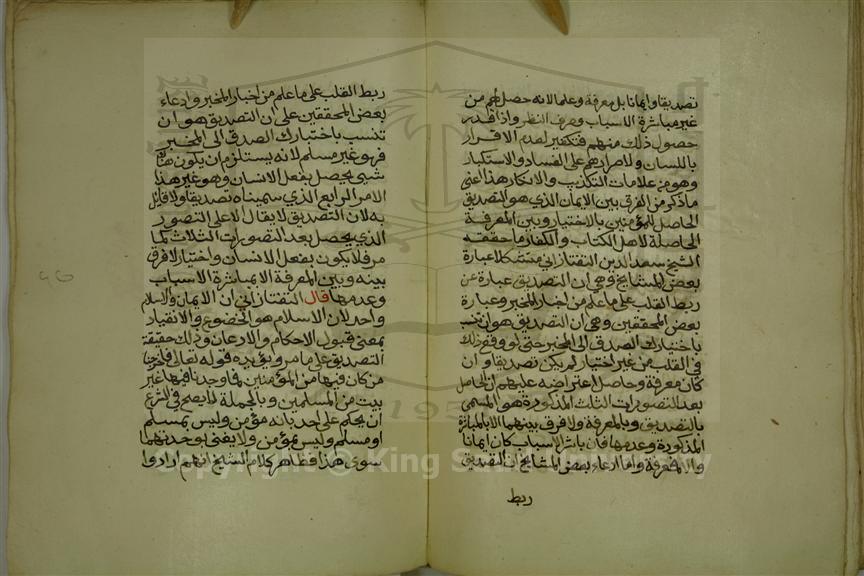 تصديقا وايمانا بل معرفة وعلما لانه حصل لهم من
غير مباشرة الاسباب وصرف النظر واذا قدر
حصول ذلك منهم فتكفير لعدم الاقرار
باللسان ولاصرارهم على الفساد والاستكبار
وهو من علامات التكذيب والانكار هذا اعنى
ما ذكر من الفرق بين الايمان الذي هو التصديق
الحاصل للمؤمنين بالاختيار وبين المعرفة
الحاصلة لاهل الكتاب والكفار ما حققه
الشيخ سعد الدين التفتازاني مستشكلا عبارة
بعض المشايخ وهي ان التصديق عبارة عن
ربط القلب على ما علم من اخبار المخبر وعبارة
بعض المحققين وهي ان التصديق هو ان تنسب
باختيارك الصدق الى المخبر حتى لو وقع ذلك
في القلب من غير اختيار لم يكن تصديقا وان
كان معرفة وحاصل اعتراضه عليهم ان الحاصل
بعد التصورات الثلث المذكورة هو المسمى
بالتصديق وبالمعرفة ولا فرق بينهما الا بالمباشرة
المذكورة وعدمها فان باشر الاسباب كان ايمانا
والا فمعرفة واما ادعاء بعض المشايخ ان التصديق
ربط
ربط القلب على ما علم من اخبار المخبر وادعاء
بعض المحققين على ان التصديق هو ان
تنسب باختيارك الصدق الى المخبر
فهو غير مسلم لانه يستلزم ان يكون هناك
شيئ يحصل بفعل الانسان وهو غير هذا
الامر الرابع الذي سميناه تصديقا ولا قائل
به لان التصديق لا يقال الا على التصور
الذي يحصل بعد التصورات الثلاث كما
مر فلا يكون بفعل الانسان واختيار لا فرق
بينه وبين المعرفة الا بمباشرة الاسباب
وعدمها قال التفتازاني ان الايمان والاسلام
واحد لان الاسلام هو الخضوع والانقياد
بمعنى قبول الاحكام والاذعان وذلك حقيقة
التصديق على ما مر ويؤيده قوله تعالى فاخرجنا
من كان فيها من المؤمنين فما وجدنا فيها غير
بيت من المسلمين وبالجملة لا يصح في الشرع
ان يحكم على احد بانه مؤمن وليس بمسلم
او مسلم وليس بمؤمن ولا يعنى بوحدتهما
سوى هذا فظاهر كلام الشيخ انهم ارادوا
Copyright © King Saud University
195